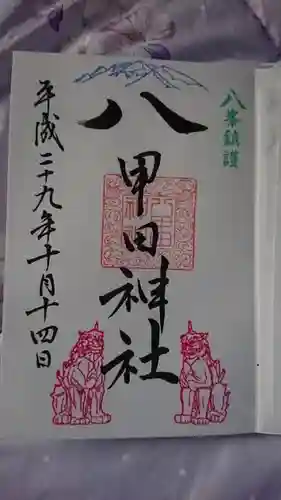 八峯鎮護
八甲田神社
平成二十九年十月十四日